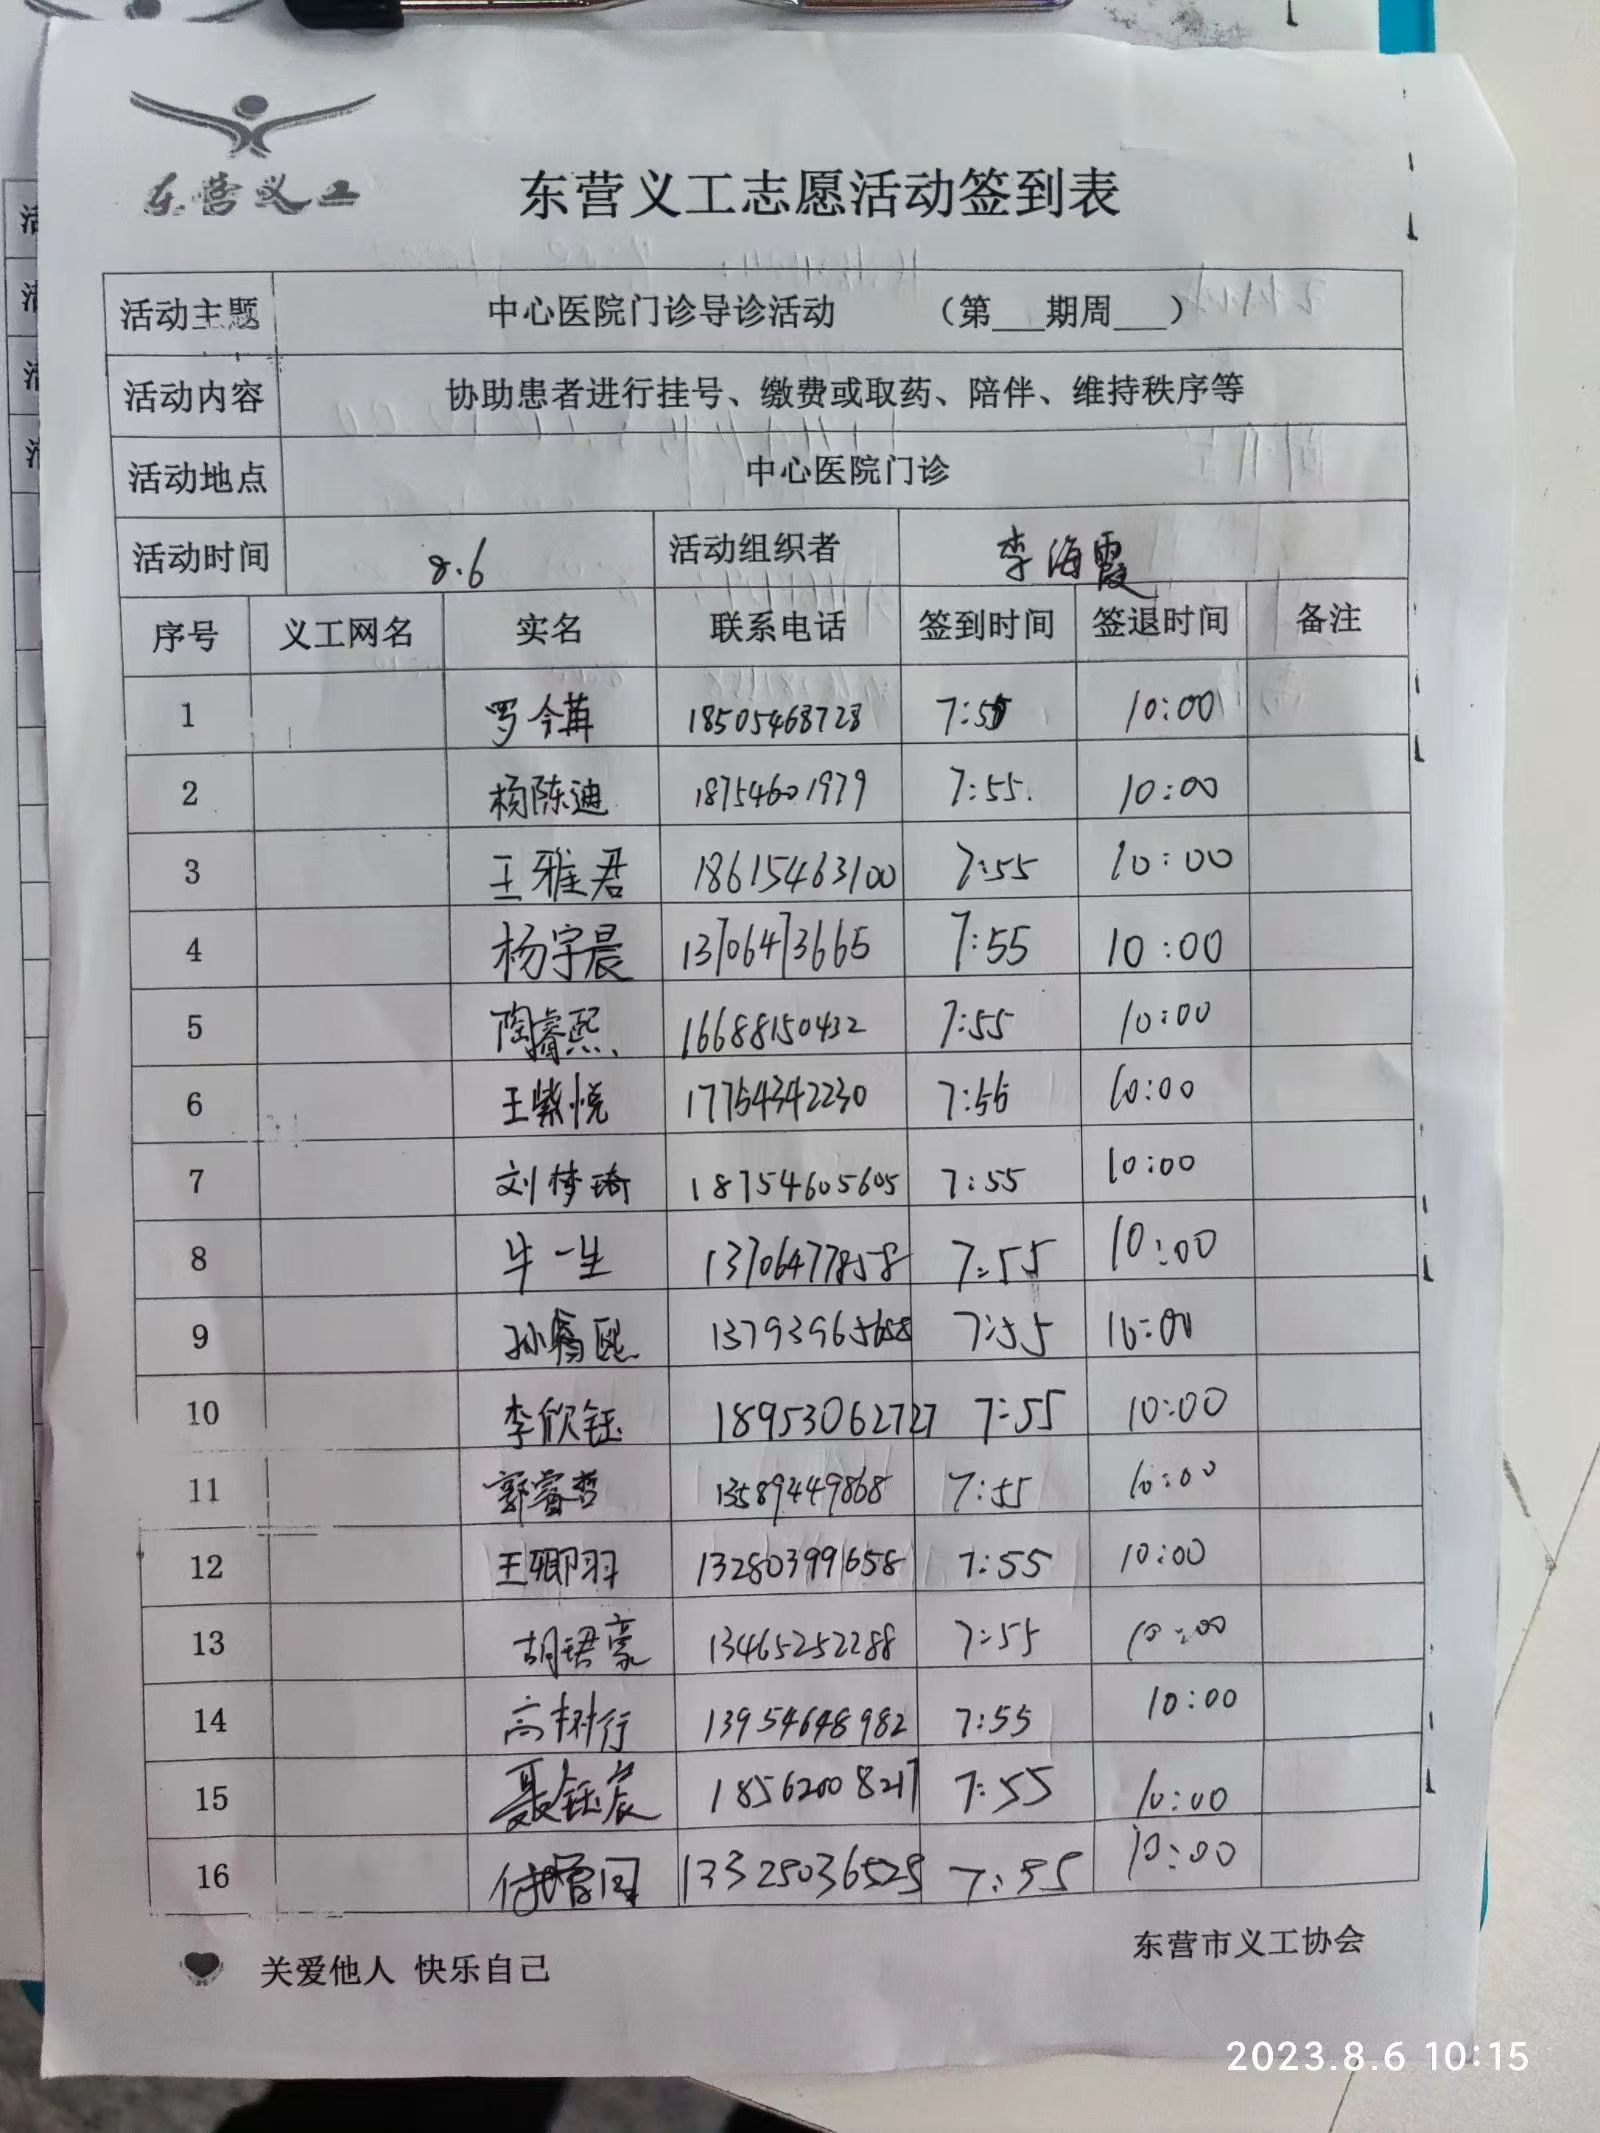 东营义工
东营义工志愿活动签到表
活动主题 中心医院门诊导诊活动 （第___期周___）
活动内容 协助患者进行挂号、缴费或取药、陪伴、维持秩序等
活动地点 中心医院门诊
活动时间 8.6 活动组织者 李海霞
序号 义工网名 实名 联系电话 签到时间 签退时间 备注
1 罗今苒 18505468728 7:55 10:00
2 杨陈迪 18754601979 7:55 10:00
3 王雅君 18615463100 7:55 10:00
4 杨宇晨 13706473665 7:55 10:00
5 陶睿熙 16688150432 7:55 10:00
6 王紫悦 17754342230 7:55 10:00
7 刘梦琦 18754605605 7:55 10:00
8 牛一生 13706477858 7:55 10:00
9 孙睿熙 13793965688 7:55 10:00
10 李欣钰 18953062727 7:55 10:00
11 郭睿哲 13589449868 7:55 10:00
12 王卿羽 13280399658 7:55 10:00
13 胡珺豪 13465252288 7:55 10:00
14 高树行 13954648982 7:55 10:00
15 聂钰宸 18562008217 7:55 10:00
16 13325036525 7:55 10:00
关爱他人 快乐自己
东营市义工协会
2023.8.6 10:15